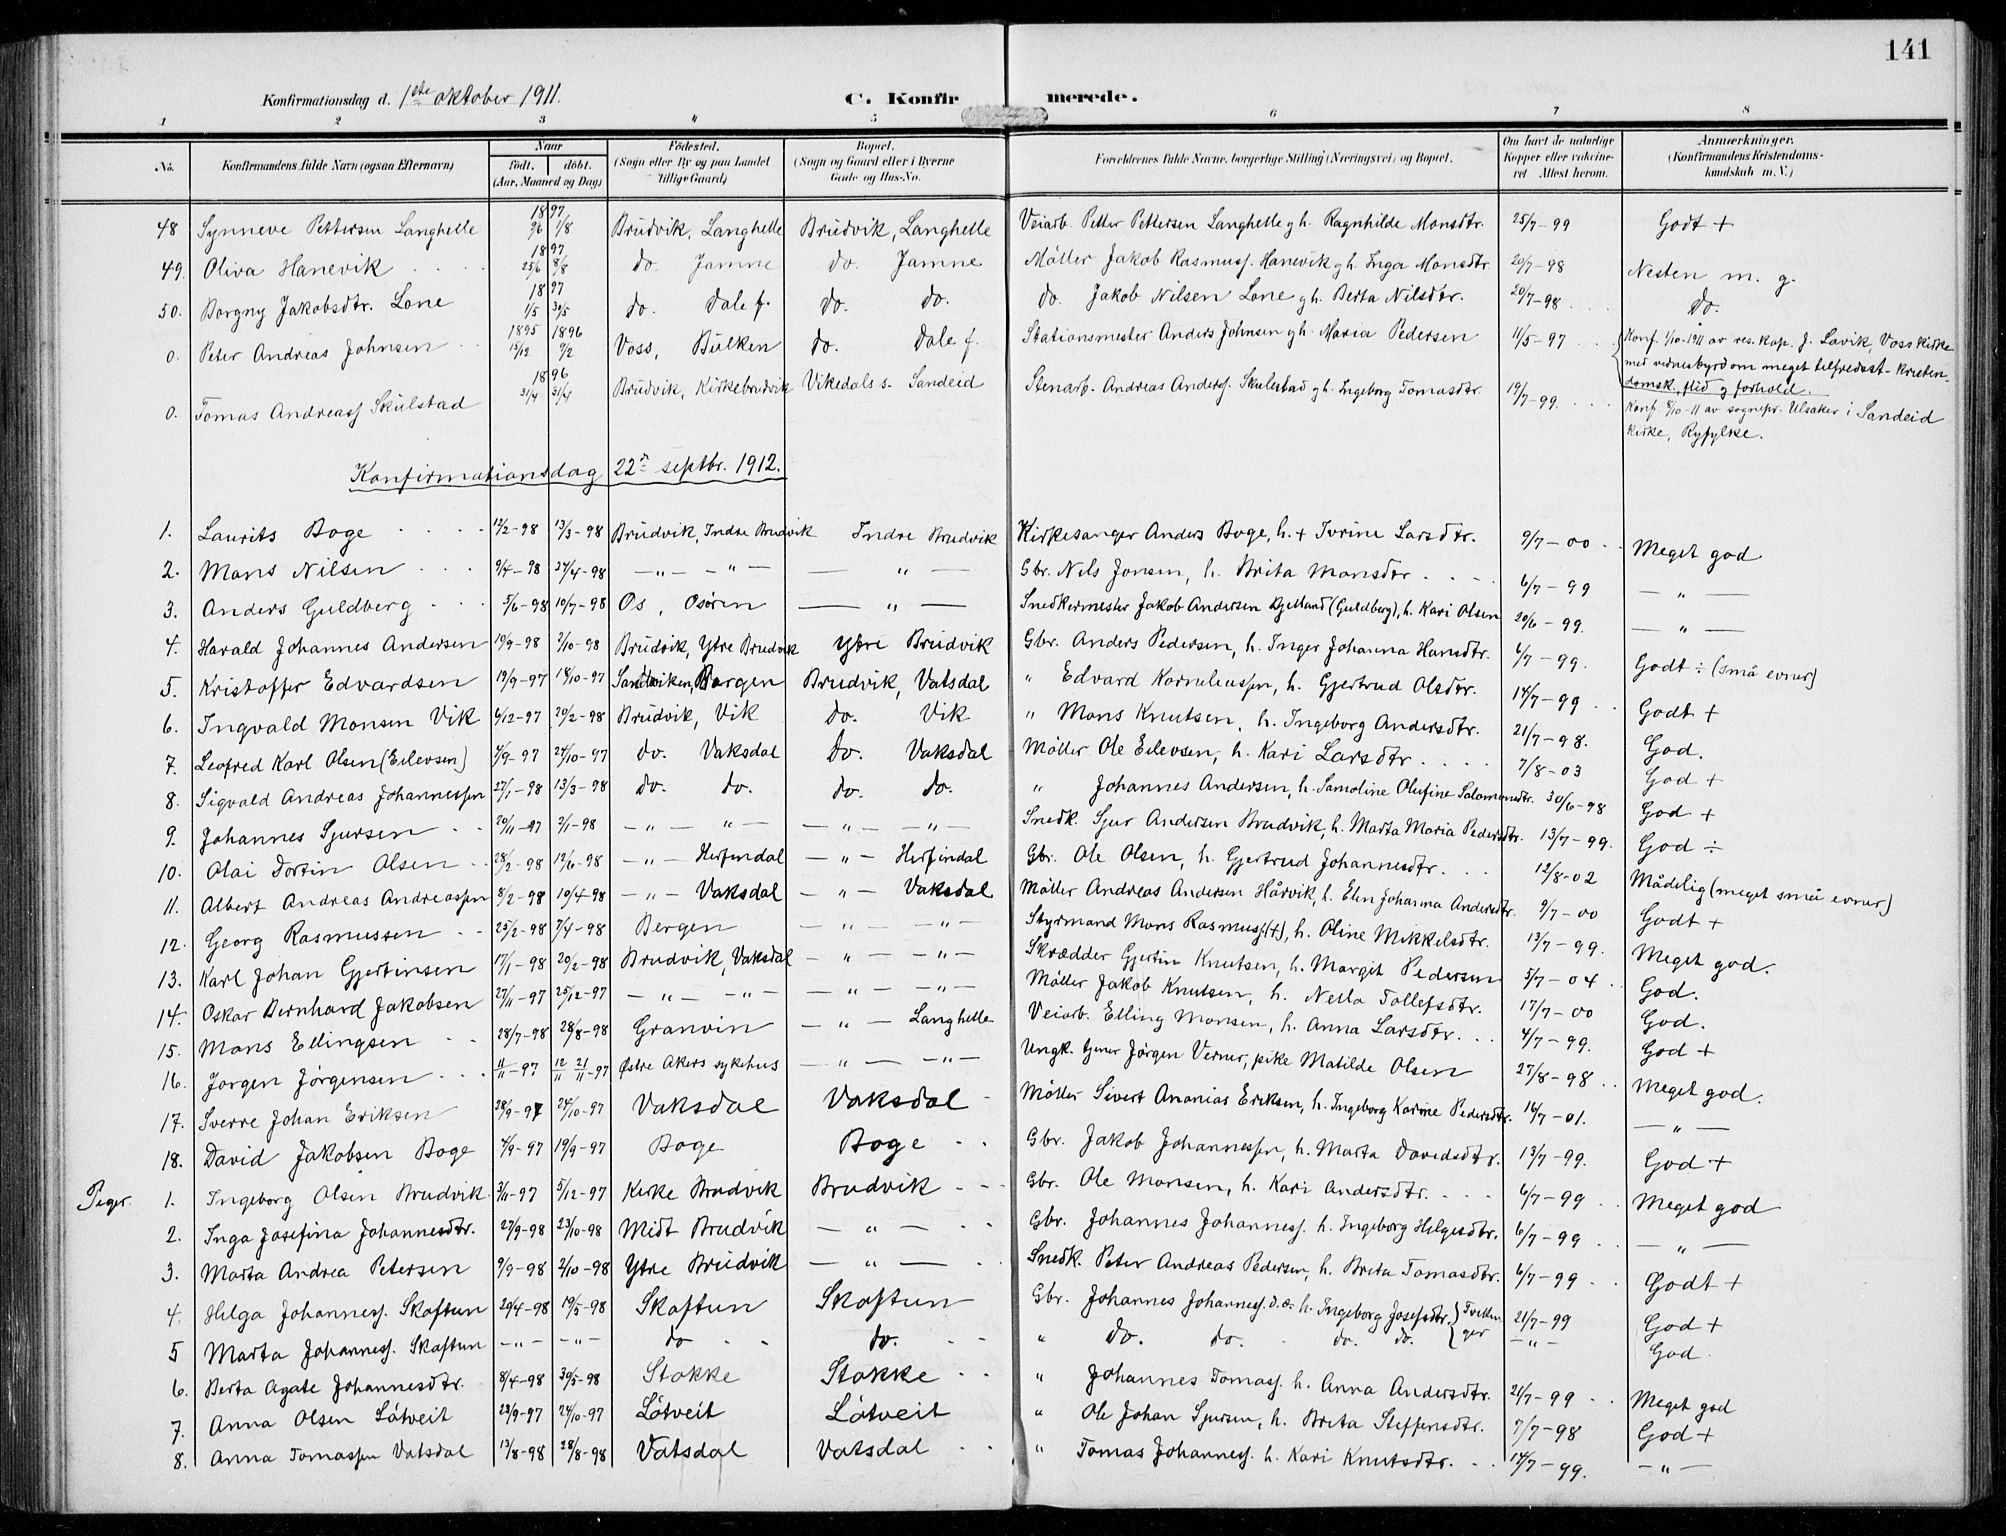 141
Konfirmationsdag d. 1ste oktober 1911. C. Konfir merede.
1 2 3 4 5 6 7 8
No. Konfirmandens fulde Navn (ogsaa Efternavn) Naar født. døbt. (Aar, Maaned og Dag) Fødested. (Sogn eller By og paa Landet tillige Gaard) Bopæl. (Sogn og Gaard eller i Byerne Gade og Hus-No. Forældrenes fulde Navne, borgerlige Stilling (Næringsvei) og Bopæl. Om havt de naturlige Kopper eller vaccineret Attest herom. Anmærkninger. (Konfirmandens Kristendomskundskab m. V.)
48 Synneve Pettersen Langhelle 1897 1/8 Brudvik, Langhelle Brudvik, Langhelle Veiarb. Petter Pettersen Langhelle g h. Ragnhilde Monsdtr. 25/7-99 Godt +
49. Oliva Hanevik 1897 25/6 8/8 do. Jamne do. Jamne Møller Jakob Rasmuss. Hanevik g h. Inga Monsdtr. 20/7-98 Nesten m. g.
50. Borgny Jakobsdtr. Lone 1897 1/5 30/5 do. Dale f. do. do. do. Jakob Nilsen Lone g h. Berta Nilsdtr. 20/7-98 do.
0. Peter Andreas Johnsen 1895 15/12 1896 9/2 Voss, Bulken do. Dale f. Stationsmester Anders Johnsen g h. Maria Pedersen 11/5-97 Konf. 1/10-1911 av res. kap. J. Lavik, Voss kirke
med vidnesbyrd om meget tilfredsst. kristen-
domsk., flid og forhold.
0. Tomas Andreass Skulstad 1896 31/4 Brudvik, Kirkebrudvik Vikedals s. Sandeid Stenarb. Andreas Anderss. Skulestad g h. Ingeborg Tomasdtr. 19/7-99. Konf. 8/10-11 av sognepr. Ulsaker i Sandeid
kirke, Ryfylke.
Konfirmationsdag 22n septbr. 1912.
1. Laurits Boge 12/2-98 13/3-98 Brudvik, Indre Brudvik Indre Brudvik Kirkesanger Anders Boge, h. + Ivrine Larsdtr. 9/7-00 Meget god
2. Mons Nilsen 9/4-98 24/4-98 -"- -"- -"- Gbr. Nils Jonsen, h. Brita Monsdtr 6/7-99 -"-
3. Anders Guldberg 5/6-98 10/7-98 Os, Osøren -"- Snedkermester Jakob Andersen Kjelland (Guldberg), h. Kari Olsen 20/6-99. -"-
4. Harald Johannes Andersen 19/9-98 2/10-98 Brudvik, Ytre Brudvik Ytre Brudvik Gbr. Anders Pedersen, h. Inger Johanna Hansdtr. 6/7-99. Godt ÷ (små evner)
5. Kristoffer Edvardsen 19/9-97 18/10-97 Sandviken, Bergen Brudvik, Vatsdal " Edvard Korneliussen, h. Gjertrud Olsdtr. 14/7-99 Godt +
6. Ingvald Monsen Vik 6/12-97 20/2-98 Brudvik, Vik do. Vik " Mons Knutsen, h. Ingeborg Andersdtr. 21/7-98. God.
7. Leofred Karl Olsen (Eilevsen) 1/9-97 24/10-97 do. Vaksdal do. Vaksdal Møller Ole Eilevsen, h. Kari Larsdtr 7/8-03 God +
8. Sigvald Andreas Johannessen 27/1-98 13/3-98 do. do. do. do. " Johannes Andersen, h. Samoline Olufine Salomonsdtr. 30/6-98 God +
9. Johannes Sjursen 20/11-97 2/1-98 -"- -"- -"- -"- Snedk. Sjur Andersen Brudvik, h. Marta Maria Pedersdtr. 13/7-99. God ÷
10. Olai Tortin Olsen 28/2-98 12/6-98 -"- Herfindal -"- Herfindal Gbr. Ole Olsen, h. Gjertrud Johannesdtr. 12/8-02 Mådelig (meget små evner)
11. Albert Andreas Andreassen 8/2-98 10/4-98 -"- Vaksdal -"- Vaksdal Møller Andreas Andersen Hårvik, h. Elen Johanna Andersdtr. 9/7-00 Godt +
12. Georg Rasmussen 25/2-98 7/4-98 Bergen -"- -"- Styrmand Mons Rasmuss. (+), h. Oline Mikkelsdtr. 13/7-99. Meget god.
13. Karl Johan Gjertinsen 17/1-98 20/2-98 Brudvik, Vaksdal -"- -"- Skrædder Gjertin Knutsen, h. Margit Pedersen 5/7-04 God.
14. Oskar Bernhard Jakobsen 27/11-97 25/12-97 -"- -"- -"- -"- Møller Jakob Knutsen, h. Nella Tollefsdtr. 17/7-00 God.
15. Mons Ellingsen 28/7-98 28/8-98 Granvin -"- Langhelle Veiarb. Elling Monsen, h. Anna Larsdtr. 4/7-99. God +
16. Jørgen Jørgensen 11/11-97 12/11 21/11-97 Østre Akers sykehus -"- -"- Ungk. tjener Jørgen Verner, pike Matilde Olsen 27/8-98 Meget god.
17. Sverre Johan Eriksen 28/9-97 24/10-97 Vaksdal Vaksdal Møller Sivert Ananias Eriksen, h. Ingeborg Karine Pedersdtr. 16/7-01. -"-
18. David Jakobsen Boge 4/9-97 19/9-97 Boge Boge Gbr. Jakob Johannessen, h. Marta Davidsdtr. 13/7-99. God +
Piger. 1. Ingeborg Olsen Brudvik 3/11-97 5/12-97 Kirke Brudvik Brudvik Gbr. Ole Monsen, h. Kari Andersdtr. 6/7-99 Meget god
2. Inga Josefina Johannesdtr. 27/9-98 23/10-98 Midt Brudvik -"- Gbr. Johannes Johanness. h. Ingeborg Helgesdtr. 6/7-99 -"-
3. Marta Andrea Petersen 9/9-98 2/10-98 Ytre Brudvik -"- Snedk. Peter Andreas Pedersen, h. Brita Tomasdtr. 6/7-99 Godt +
4. Helga Johanness. Skaftun 20/4-98 19/5-98 Skaftun Skaftun Gbr. Johannes Johanness. d. æ. h. Ingeborg Josefsdtr. Tvillin- 21/7-99 God +
5 Marta Johanness. Skaftun -"- -"- do do. " do. do. do. do. ger -"- God
6. Berta Agate Johannesdtr. 8/4-98 30/5-98 Stokke Stokke " Johannes Tomass. h. Anna Andersdtr. 21/7-99 Meget god
7. Anna Olsen Låtveit 23/9-97 24/10-97 Låtveit Låtveit " Ole Johan Sjursen, h. Brita Steffensdtr. 7/7-98 God +
8. Anna Tomassen Vatsdal 13/8-98 28/8-98 Vatsdal Vatsdal " Tomas Johanness. h. Kari Knutsdtr. 14/7-99. -"-